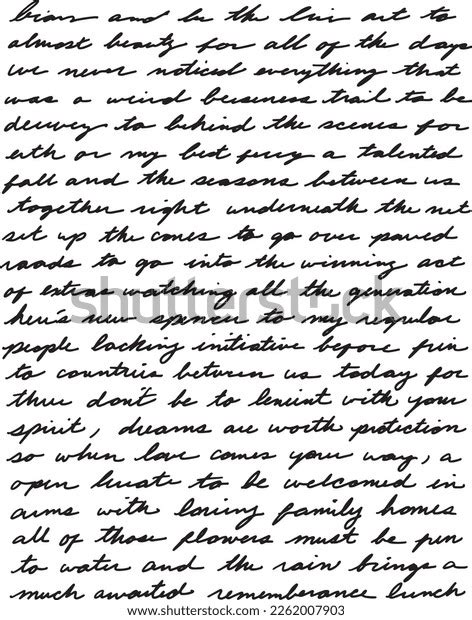 and be the art to
almost beauty for all of the days
we never noticed everything that
was a weird business trail to be
to behind the scenes for
or my best a talented
fall and the seasons between us
together right underneath the net
set up the cones to go over paved
roads to go into the winning act
of extras watching all the generation
here's new spencer to my regular
people lacking initiative before
to countries between us today for
don't be to lenient with your
spirit, dreams are worth protection
so when love comes your way, a
open to be welcomed in
arms with loving family homes
all of those flowers must be
to water and the rain brings a
much awaited rememberance lunch
shutterstock
shutterstock.com · 2262007903